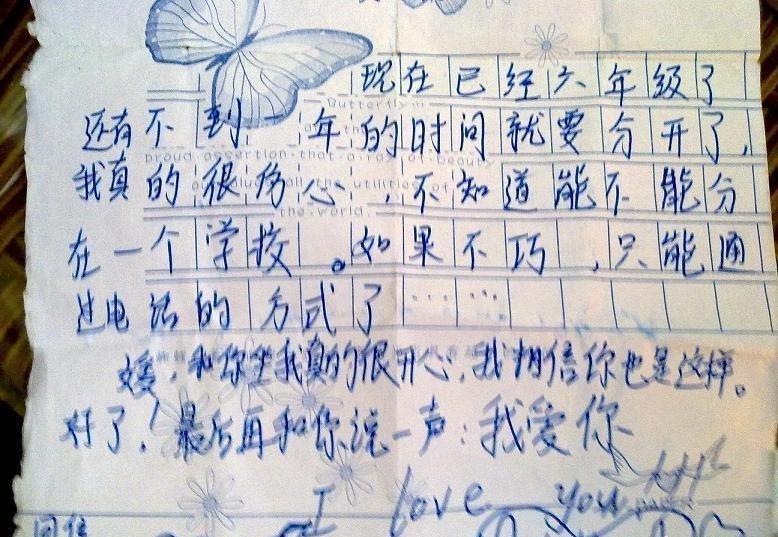 现在已经六年级了
还有不到一年的时间就要分开了,
我真的很伤心,不知道能不能分
在一个学校。如果不巧,只能通
过电话的方式了……
Butterfly
proud assertion that a ray of beauty
all the utilities of
the world.
媛,和你坐我真的很开心,我相信你也是这样。
好了!最后再和你说一声:我爱你
I love you
回信